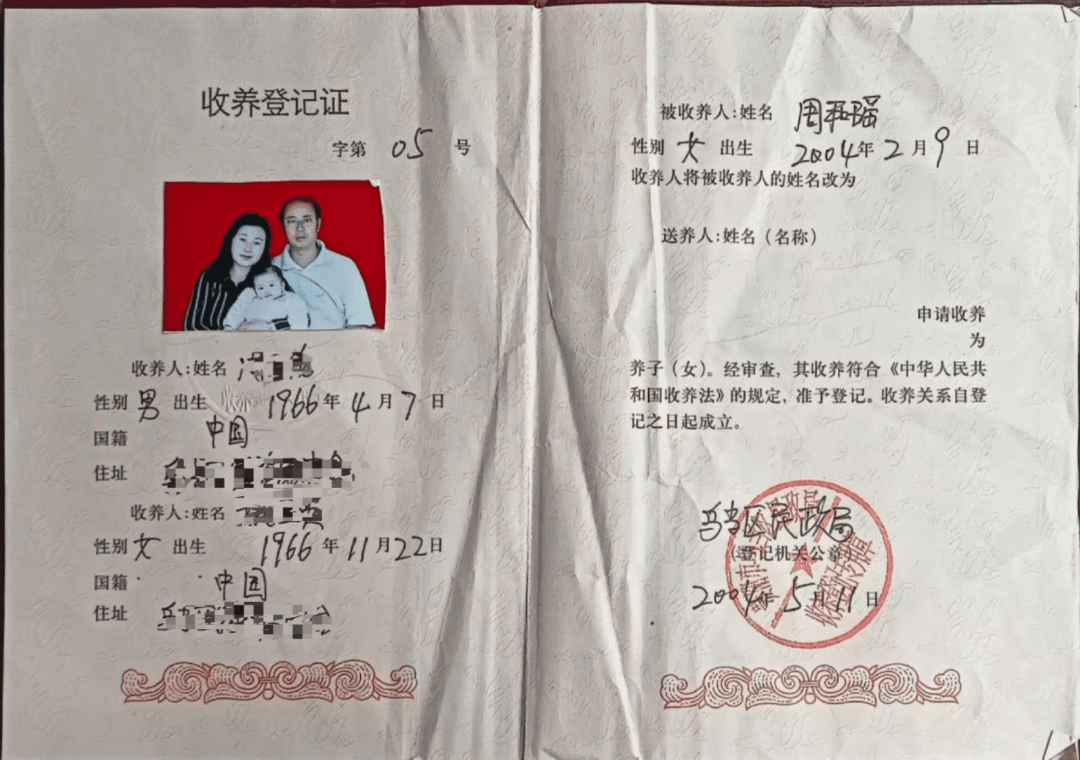 收养登记证
字第 05 号
收养人:姓名
性别 男 出生 1966年4月7日
国籍 中国
住址
收养人:姓名
性别 女 出生 1966年11月22日
国籍 中国
住址
被收养人:姓名 周和瑶
性别 女 出生 2004年2月9日
收养人将被收养人的姓名改为
送养人:姓名(名称)
申请收养
为
养子(女)。经审查,其收养符合《中华人民共
和国收养法》的规定,准予登记。收养关系自登
记之日起成立。
乌当区民政局
(登记机关公章)
2004年5月11日